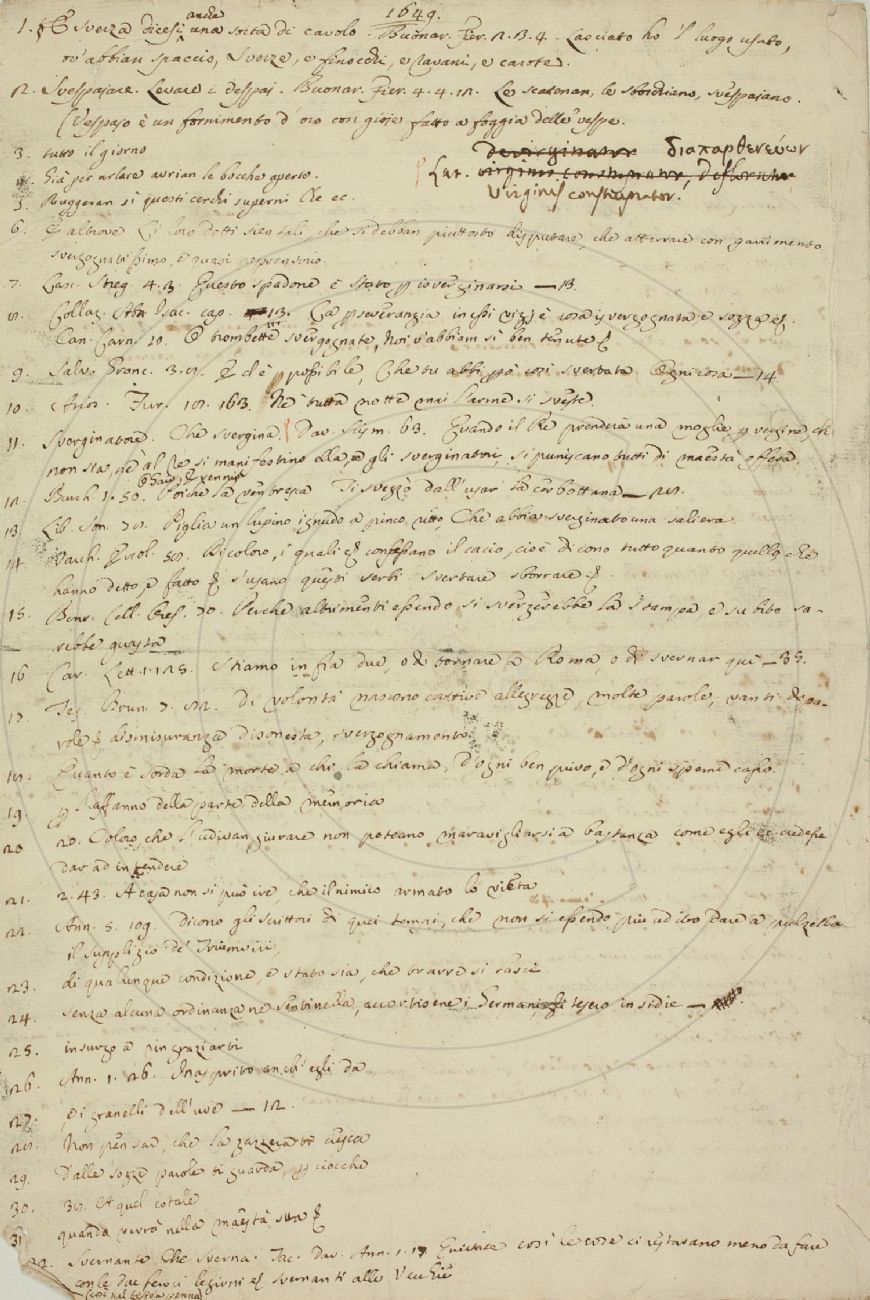 1649.
1. E Sverza dicesi anche una sorta di cavolo. Buonar. Fier. 2. 3. 4. Lasciato ho 'l luogo usato,
ov' abbian spaccio, Sverze, e finocchi, e ravani, e carote.
2. Svespajare. Levare i vespaj. Buonar. Fier. 4. 4. 12. Le scatonan, le sbordiano, svespajano.
(Vespajo è un fornimento d' oro con gioje fatto a foggia delle vespe.
3. tutto il giorno
Lat. devirginator διαπαρθενεύων
4. Già per urlare avrian le bocche aperte.
virginis constuprator, deflorator
5. Ruggeran sì questi cerchi superni Che ec.
Virginis constuprator.
6. E altrove Li loro detti sien tali, che si debban piuttosto disputare, che atterrare con garrimento
svergognatissimo, e quasi reprensorio.
7. Lasc. Streg. 4. 3. Questo spadone è stato per isverginarsi — 13.
8. Collaz. Ab. Isac. cap. 13. La perseveranzia in essi vizj è cosa isvergognata e sozza ec.
Can. Carn. 10. O trombette svergognate, Noi v'abbiam sì ben tenute
9. Salv. Granc. 3. Che tu abbi poi così sverbata Ogni cosa — 14
10. Arios. Fur. 18. 163. Nè tutta notte mai l'arme si sveste.
11. Sverginatore. Che svergina. Dav. Scism. 63. Quando il Re prenderà una moglie per vergine, che
non sia, nè al Re si manifestino ella, e gli sverginatori, si puniscano tutti di maestà offesa.
12. Burch. 1. 50. Poichè la ventresca Ti svezzò dall' usar la cerbottana — 28.
13. Lib. Son. 78. Piglia un lupino ignudo a pinco ritto, Che abbia sverginato una saliera
14. Varch. Ercol. Ricoloro, i quali confessano il cacio, cioè dicono tutto quanto quello, che
hanno detto, e fatto s' usano questi verbi svertare sborrare
15. Benv. Cell. Oref. 70. Perchè altrimenti essendo si sverzerebbe la stampa e subito sa-
rebbe guasta
16 Car. Lett. 1. 125. Stiamo in fra due, o di tornare a Roma, o di svernar quì — 35.
17. Tes. Brun. 7. Di volontà nascono cattive allegrezze, molte parole, vanti di pa-
role dismisuranza disonesta, svergognamento
18. Quanto è sorda la morte a chi la chiama, D'ogni ben privo, e d'ogni speme casso
19. Raffanno della parte della memoria
20 20. Coloro, che l'udivan giurare non poteano maravigliarsi a bastanza come egli credesse
dar ad intendere
21. 2. 43. A casa non si può ire, che il nimico armato lo vieta
22. Ann. 5. 109. Dicono gli scrittori di quei tempi, che non si essendo più udito dare a pulzella
il supplizio de' Triumviri,
23. di qualunque condizione, e stato sia, che trarre si lasci
24. senza alcuna ordinanza nè sentinella, accortisene i Germani, tesero insidie —
25. insurgo a ringraziarti
26. Ann. 1. 26. Inasprito anch' egli da
27. e i granelli dell' uve — 12.
28. Non pensar, che la zazzera cresca
29. Dalle sozze parole ti guarda
30. 38. Et quel cotale
31 quando verrà nella maestà sua
32. Svernante. Che sverna. Tac. Dav. Ann. 1. 17 così le cose ci restavano meno da fare
con le due feroci legioni svernanti alle Vecchie
(così nel testo a penna)